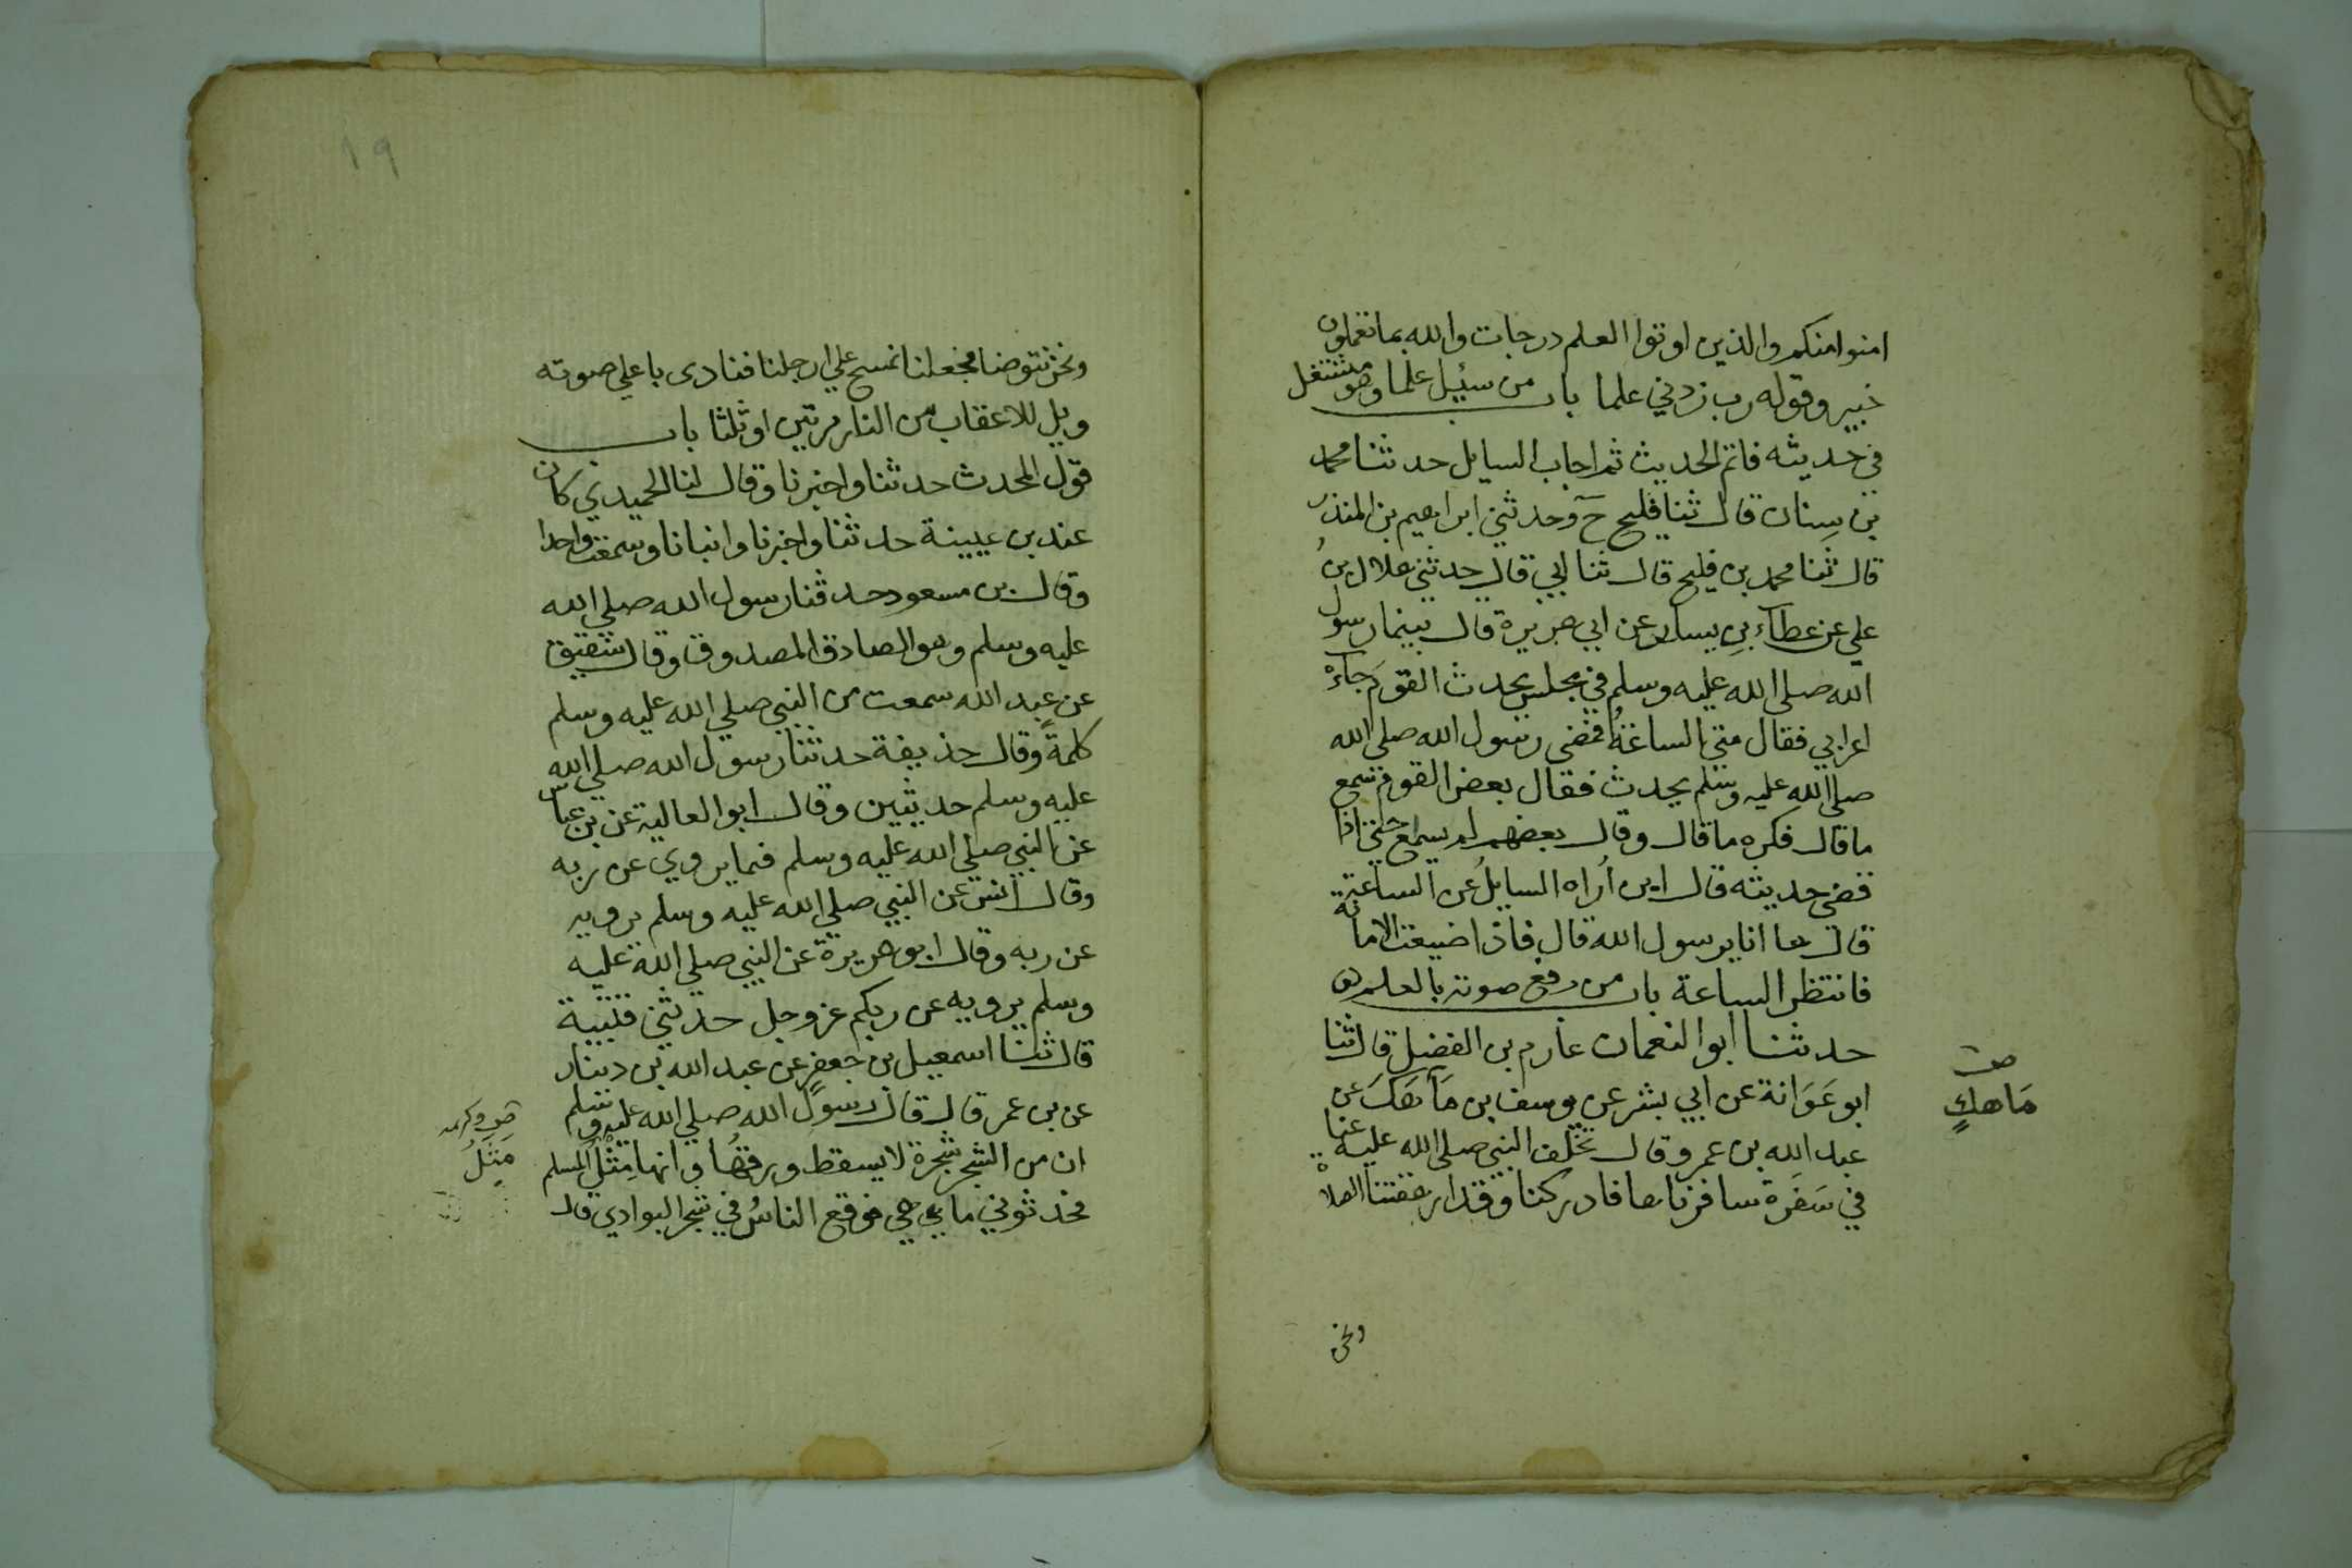 امنوا منكم والذين اوتوا العلم درجات والله بما تعملون
خبير وقوله رب زدني علما باب من سئيل علما وهو مشتغل
في حديثه فاتم الحديث ثم اجاب السايل حدثنا محمد
بن سِنان قال ثنا فليح ح وحدثني ابراهيم بن المنذر
قال ثنا محمد بن فليح قال ثنا ابي قال حدثني هلال بن
علي عن عطاء بنِ يسار عن ابي هريرة قال بينما رسول
الله صلى الله عليه وسلم في مجلس يحدث القوم جآءه
اعرابي فقال متي الساعةُ فمضى رسول الله صلى الله
صلى الله عليه وسلم يحدث فقال بعض القوم سمع
ما قال فكره ما قال وقال بعضهم لم يسمع حتي اذا
قضى حديثه قال اين اُراه السايلُ عن الساعة
قال ها انا يرسول الله قال فاذا ضيعت الامانة
فانتظر الساعة باب من رفع صوته بالعلم
حدثنا ابو النعمان عارم بن الفضيل قال ثنا
ابو عَوَانة عن ابي بشر عن يوسف بن مَاهَكَ عن
عبد الله بن عمرو قال تخلف النبي صلى الله عليه عنا
في سَفَرة سافرناها فادركنا وقد ارهقتنا الصلاة
صـ
مَاهكٍ
ونحن
١٩
ونحن نتوضا فجعلنا نمسح علي ارجلنا فنادى باعلي صوته
ويل للاعقاب من النار مرتين او ثلثا باب
قول المحدث حدثنا واخبرنا وقال لنا الحميدي كان
عند بن عيينة حدثنا واخبرنا وانبانا وسمعت واحدا
وقال بن مسعود حدثنا رسول الله صلي الله
عليه وسلم وهو الصادق المصدوق وقال شقيق
عن عبد الله سمعت من النبي صلي الله عليه وسلم
كلمةً وقال حذيفة حدثنا رسول الله صلي الله
عليه وسلم حديثين وقال ابو العالية عن بن عباس
عن النبي صلي الله عليه وسلم فيما يروي عن ربه
وقال انس عن النبي صلي الله عليه وسلم يرويه
عن ربه وقال ابو هريرة عن النبي صلي الله عليه
وسلم يرويه عن ربكم عز وجل حدثني قتيبة
قال ثنا اسمعيل بن جعفر عن عبد الله بن دينار
عن بن عمر قال قال رسول الله صلي الله عليه وسلم
ان من الشجر شجرة لا يسقط ورقها وانها مِثْلُ المسلم
فحدثوني ما هي فوقع الناسُ في شجر البوادي قال
مَثَلُ